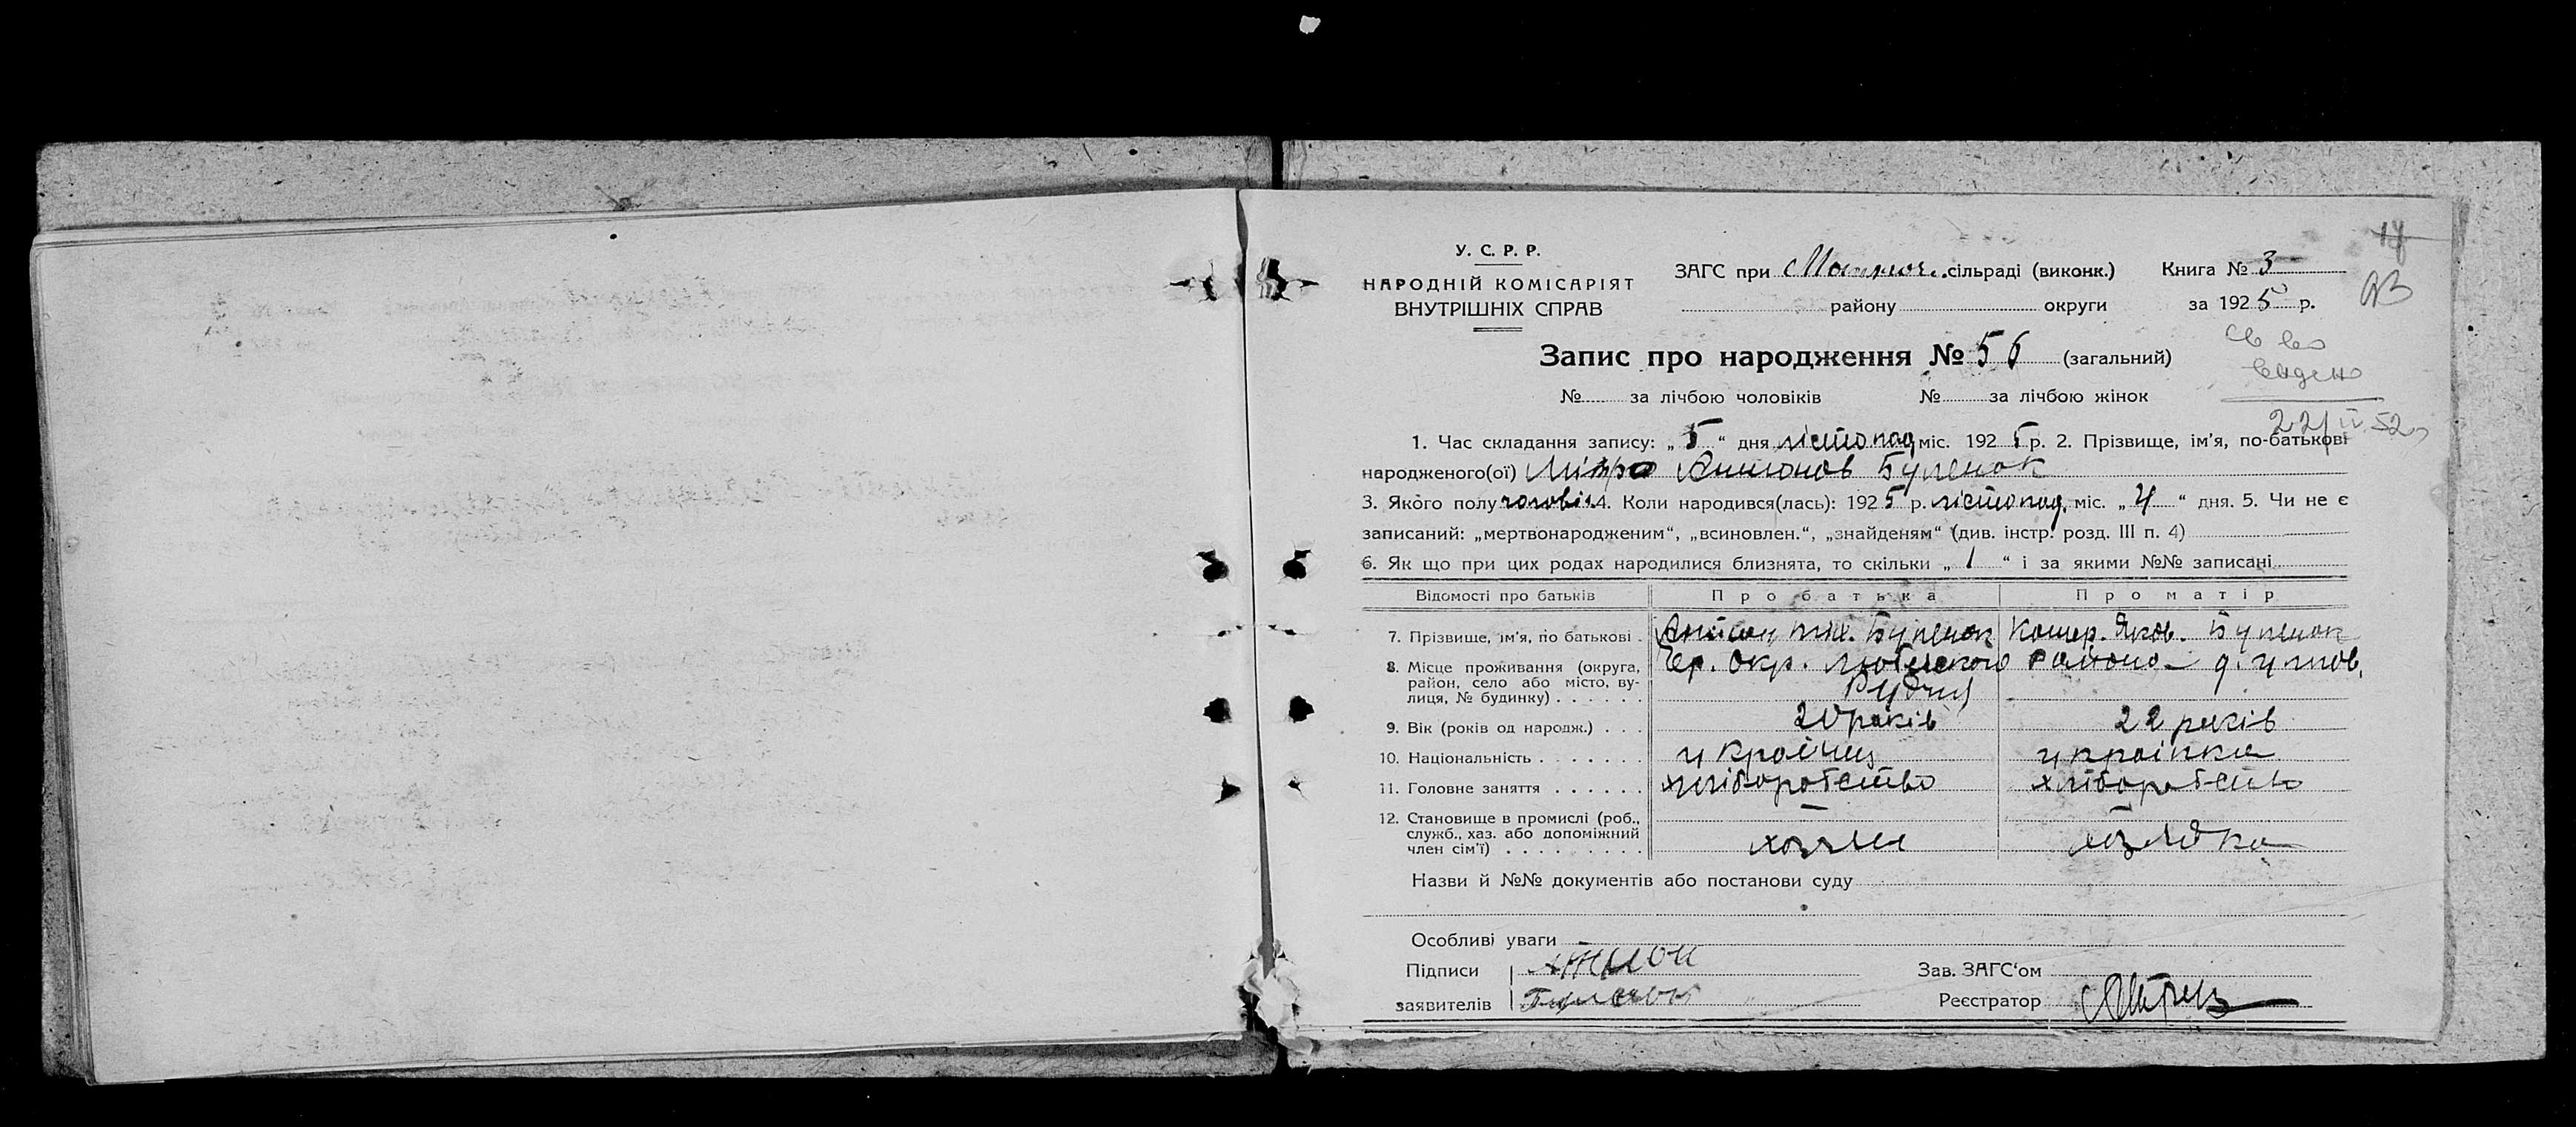 У. С. Р. Р.
НАРОДНІЙ КОМІСАРІЯТ
ВНУТРІШНІХ СПРАВ
ЗАГС при сільраді (виконк.) Книга № 3
району округи за 1925 р.
Запис про народження № 56 (загальний)
№ за лічбою чоловіків № за лічбою жінок
видено
22/IV 52
1. Час складання запису: „5“ дня лістопад міс. 1925 р. 2. Прізвище, ім’я, по-батькові
народженого(ої) Антонов Буленок
3. Якого полу 4. Коли народився(лась): 1925 р. лістопад. міс. „4“ дня. 5. Чи не є
записаний: „мертвонародженим“, „всиновлен.“, „знайденям“ (див. інстр. розд. III п. 4)
6. Як що при цих родах народилися близнята, то скільки „1“ і за якими №№ записані
Відомості про батьків Про батька Про матір
7. Прізвище, ім’я, по батькові. Антон Буленок Яков. Буленок
8. Місце проживання (округа, район, село або місто, вулиця, № будинку) Чер. Окр. района
9. Вік (років од народж.) 20 років 22 років
10. Національність україінец украінка
11. Головне заняття хліборобство хліборобство
12. Становище в промислі (роб., служб., хаз. або допоміжний член сім’ї)
Назви й №№ документів або постанови суду
Особливі уваги
Підписи Антон Зав. ЗАГС‘ом
заявителів Буленок Реєстратор